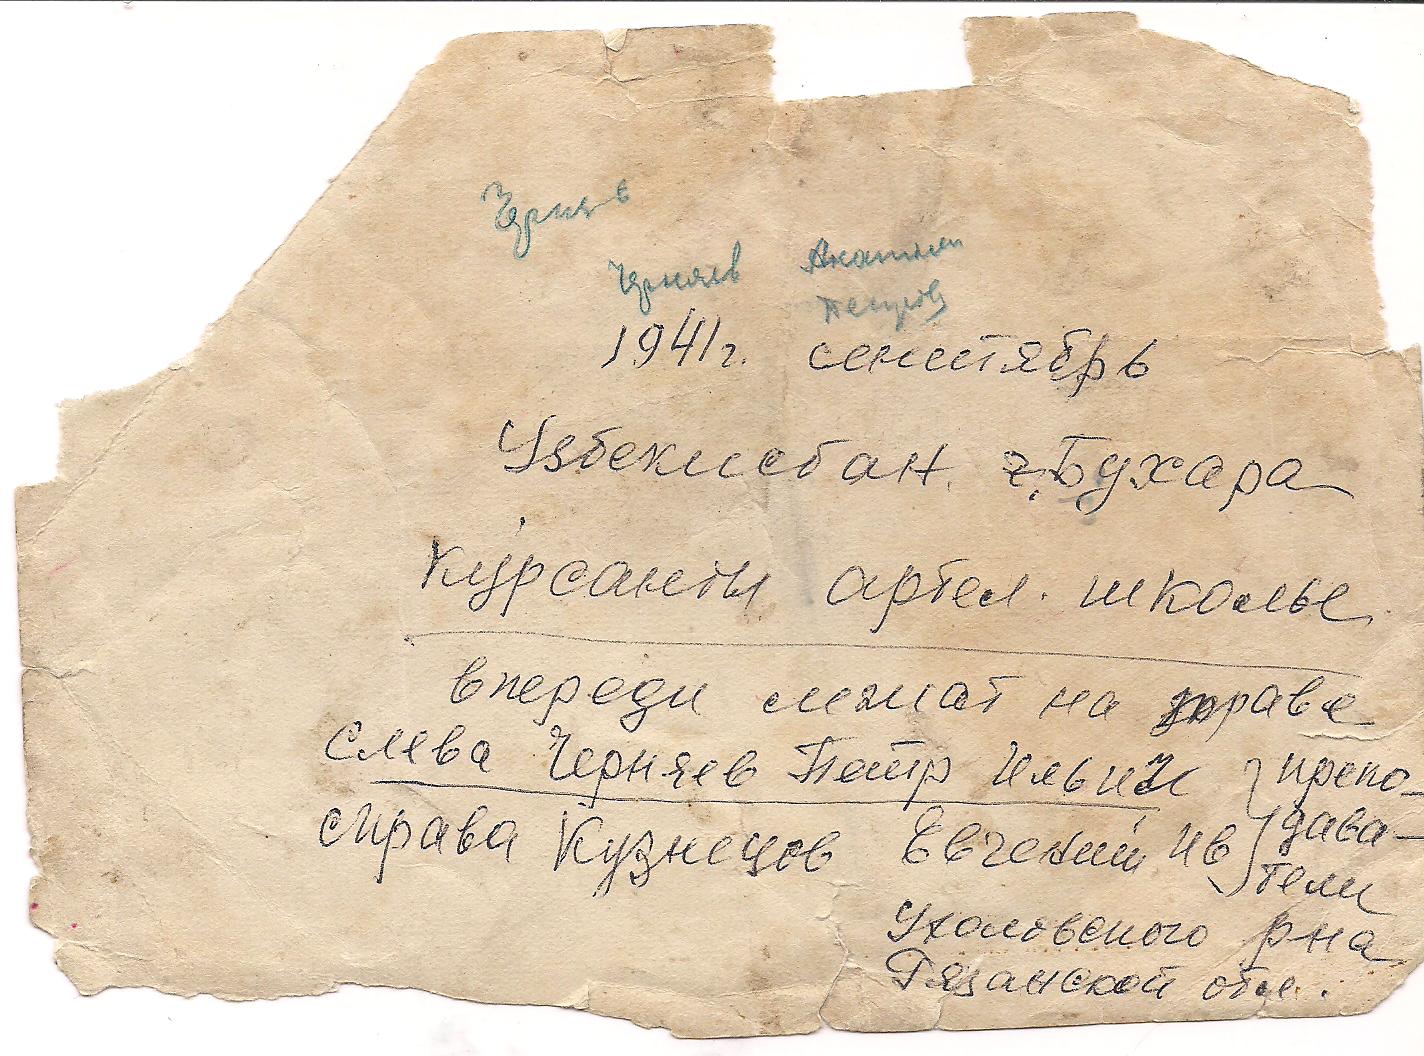 Черняев
Черняев Анатолий
Петров
1941г. сентябрь
Узбекистан. г. Бухара
Курсанты артел. школы
впереди лежат на траве
слева Черняев Петр Ильич
справа Кузнецов Евгений Ив
препо-
дава-
тели
Ухоловского р-на
Рязанской обл.